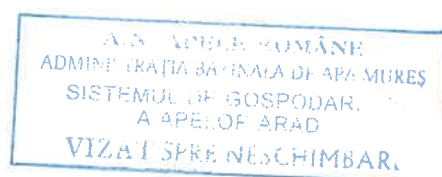 A.N. APELE ROMÂNE
ADMINISTRAŢIA BAZINALĂ DE APĂ MUREŞ
SISTEMUL DE GOSPODAR.
A APELOR ARAD
VIZAT SPRE NESCHIMBAR.